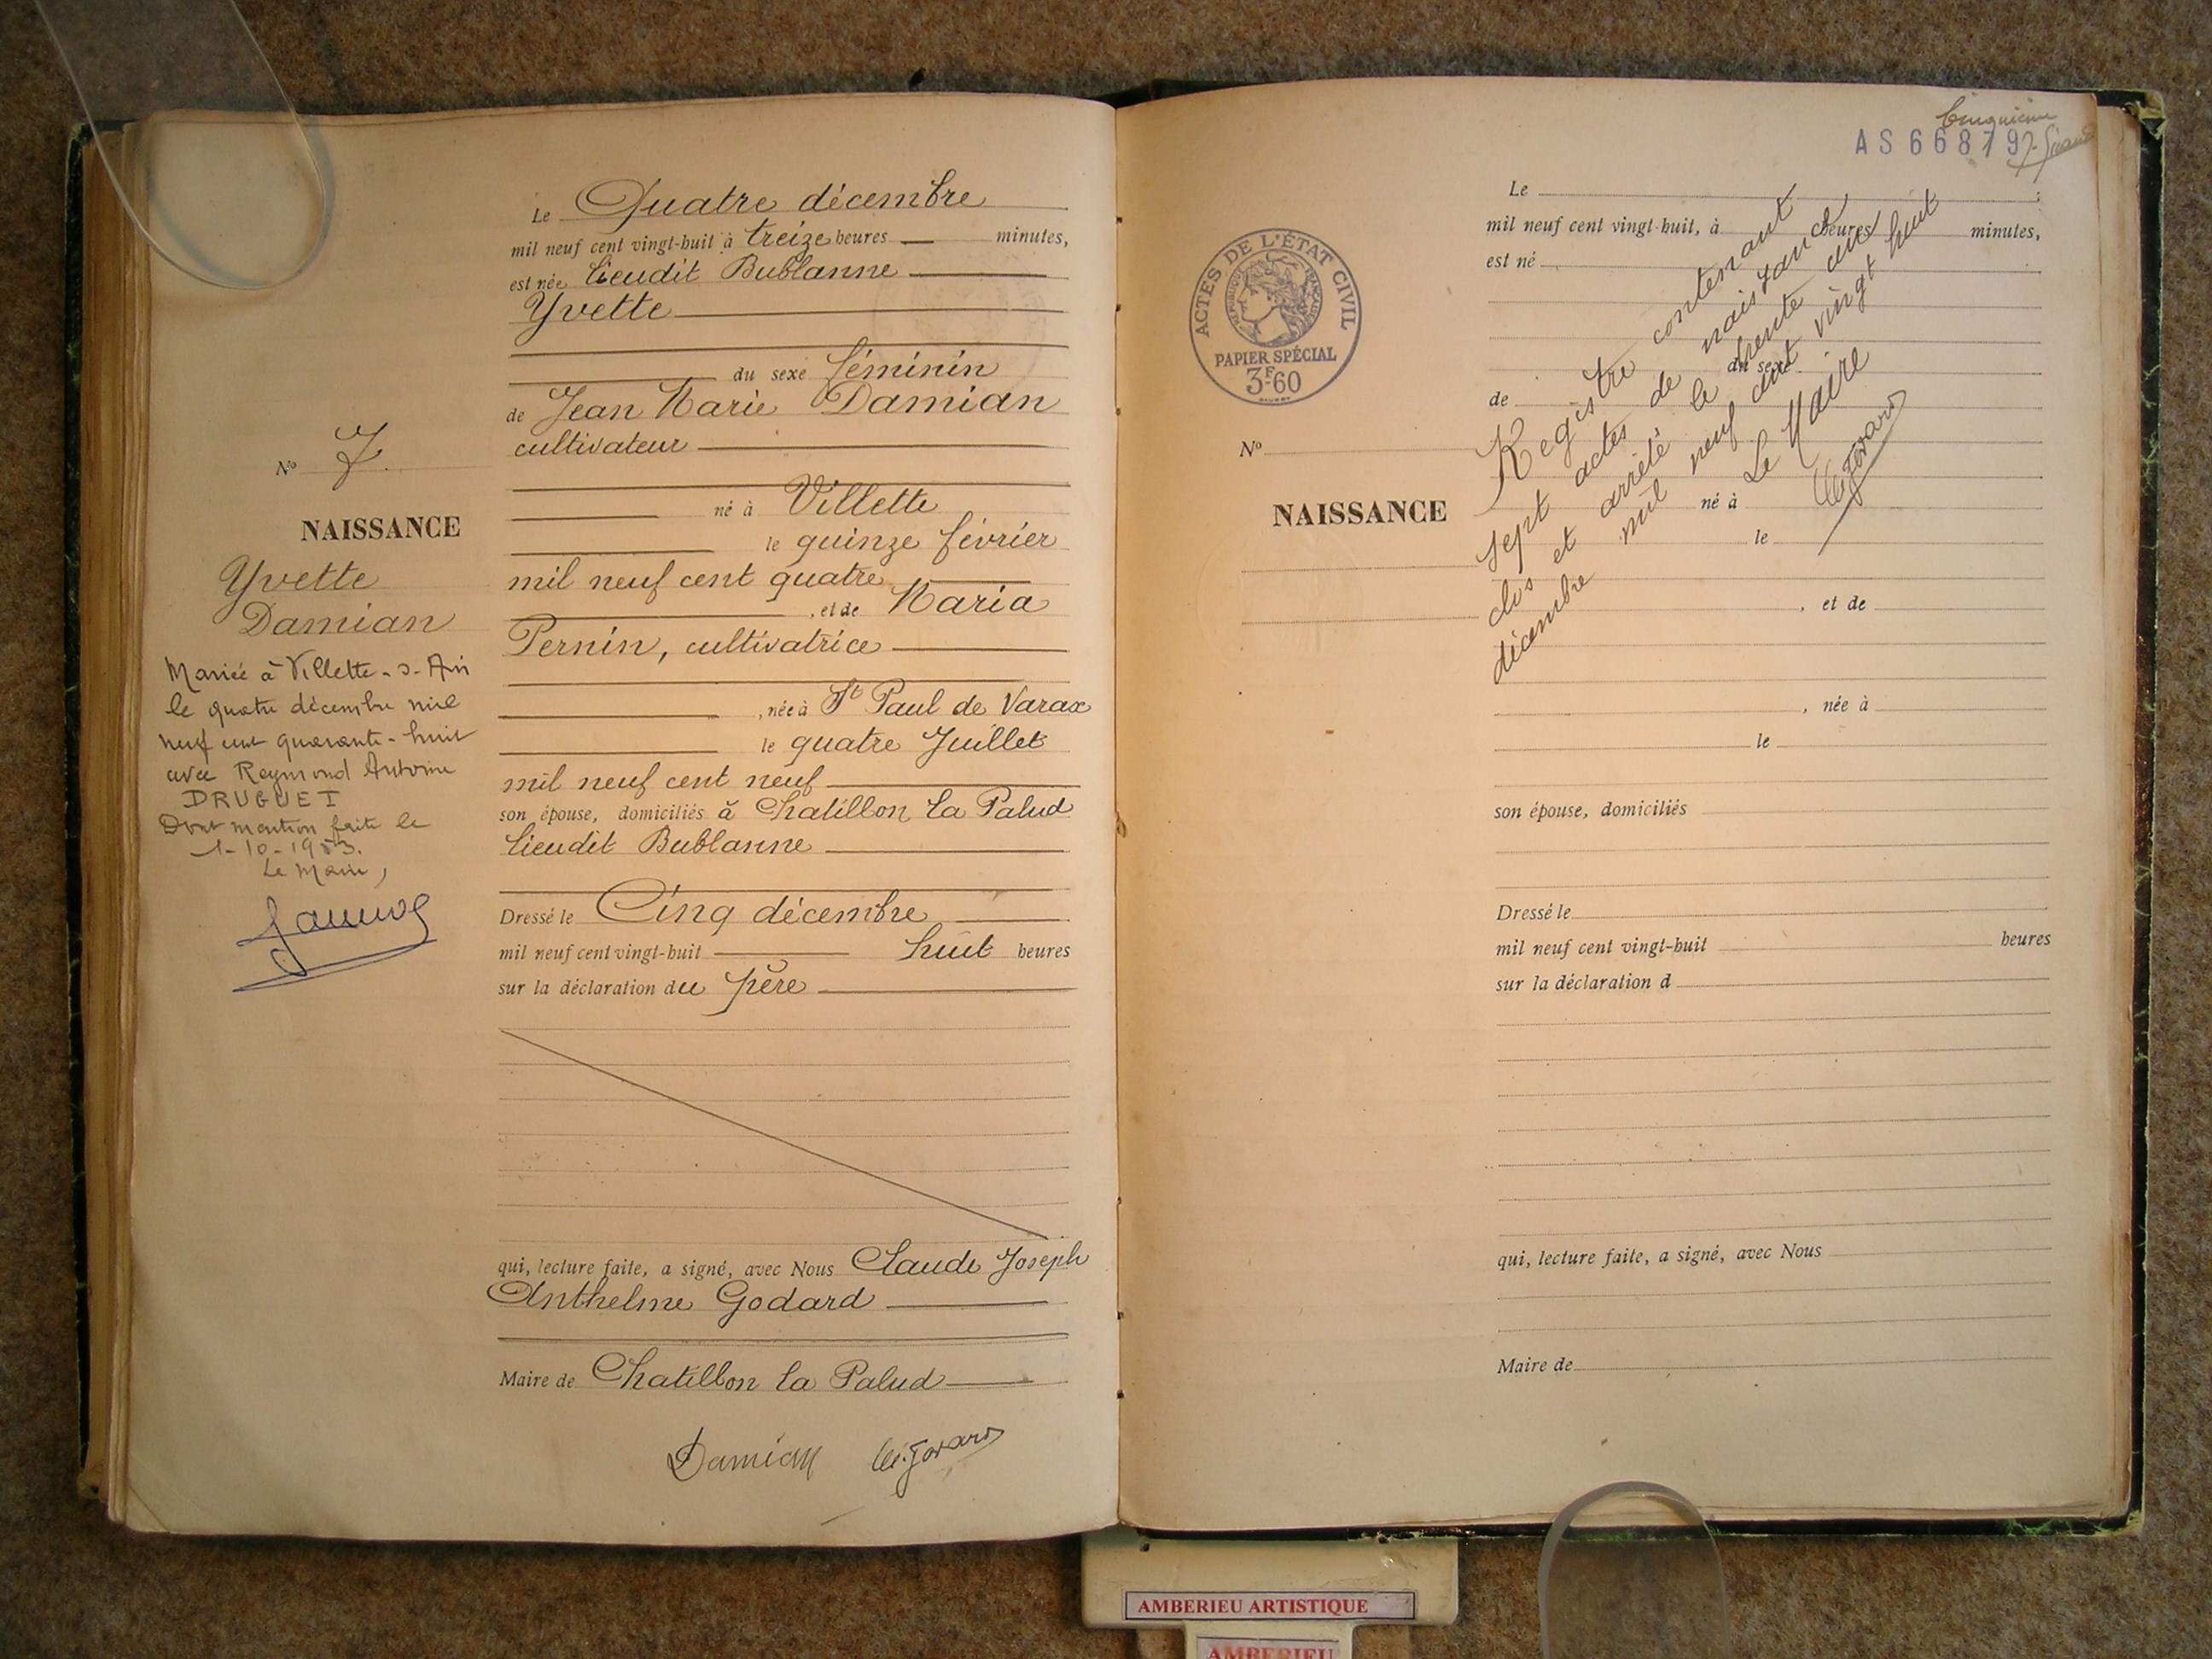 Le Quatre décembre
mil neuf cent vingt-huit à treize heures — minutes,
est née lieudit Bublanne
Yvette
du sexe féminin
de Jean Marie Damian
cultivateur
né à Villette
le quinze février
mil neuf cent quatre
, et de Maria
Pernin, cultivatrice
, née à St Paul de Varax
le quatre Juillet
mil neuf cent neuf
son épouse, domiciliés à Chatillon la Palud
lieudit Bublanne
Dressé le Cinq décembre
mil neuf cent vingt-huit huit heures
sur la déclaration du père
qui, lecture faite, a signé, avec Nous Claude Joseph
Anthelme Godard
Maire de Chatillon la Palud
Damian
No 7.
NAISSANCE
Yvette
Damian
Mariée à Villette-s-Ain
le quatre décembre mil
neuf cent quarante-huit
avec Raymond Antoine
DRUGUET
Dont mention faite le
1-10-1953.
Le Maire,
Cinquième
AS 668797
ACTES DE L'ÉTAT CIVIL
RÉPUBLIQUE FRANÇAISE
PAPIER SPÉCIAL
3F.60
No
NAISSANCE
Le
mil neuf cent vingt-huit, à heures minutes,
est né
du sexe
de
né à
le
, et de
, née à
le
son épouse, domiciliés
Dressé le
mil neuf cent vingt-huit heures
sur la déclaration d
qui, lecture faite, a signé, avec Nous
Maire de
Registre contenant
sept actes de naissance
clos et arrêté le trente un
décembre mil neuf cent vingt huit
Le Maire
AMBERIEU ARTISTIQUE
AMBERIEU